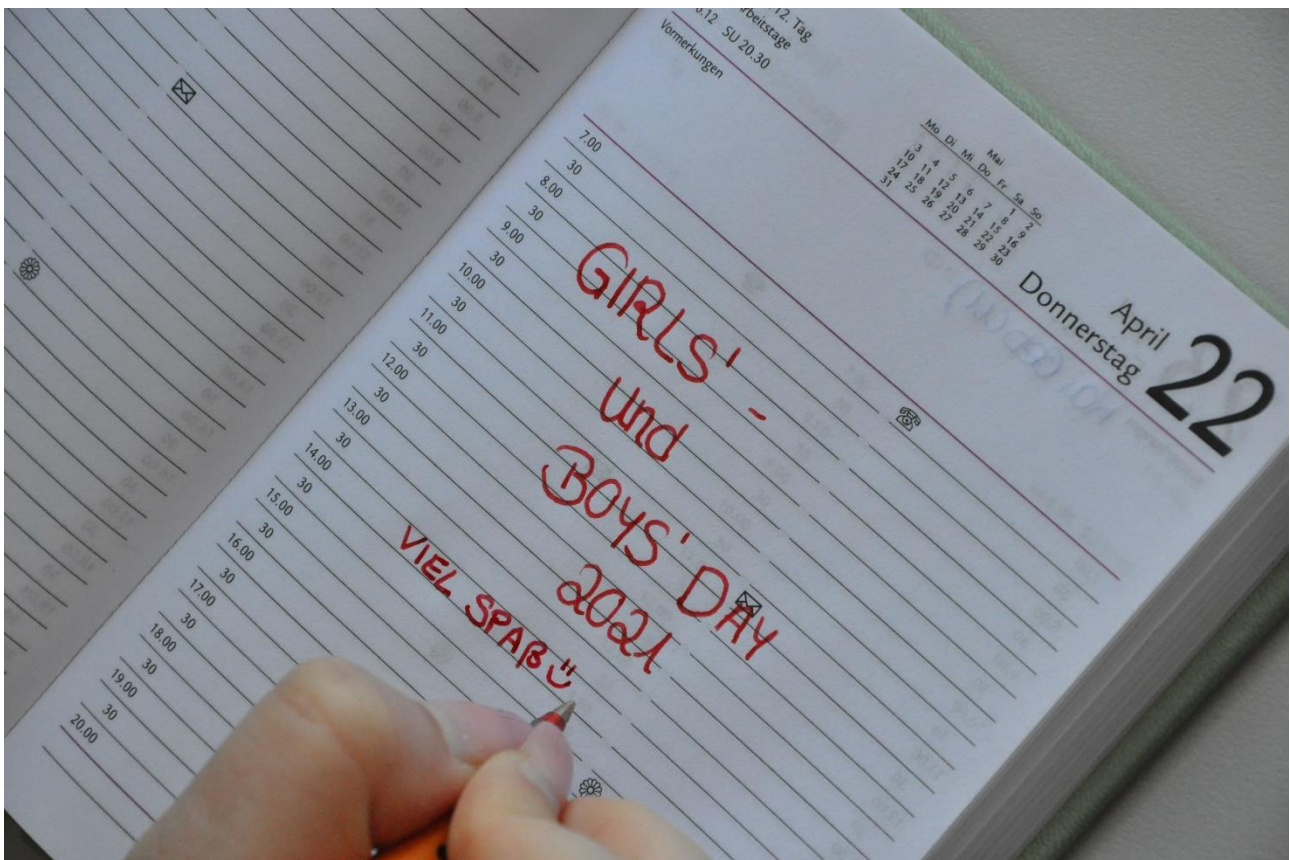 12. Tag
SU 20.30
Vormerkungen
Mai
Mo Di Mi Do Fr Sa So
1 2
3 4 5 6 7 8 9
10 11 12 13 14 15 16
17 18 19 20 21 22 23
24 25 26 27 28 29 30
31
April
Donnerstag
22
7.00
30
8.00
30
9.00
30
10.00
30
11.00
30
12.00
30
13.00
30
14.00
30
15.00
30
16.00
30
17.00
30
18.00
30
19.00
30
20.00
GIRLS' -
und
BOYS' DAY
2021
VIEL SPAß